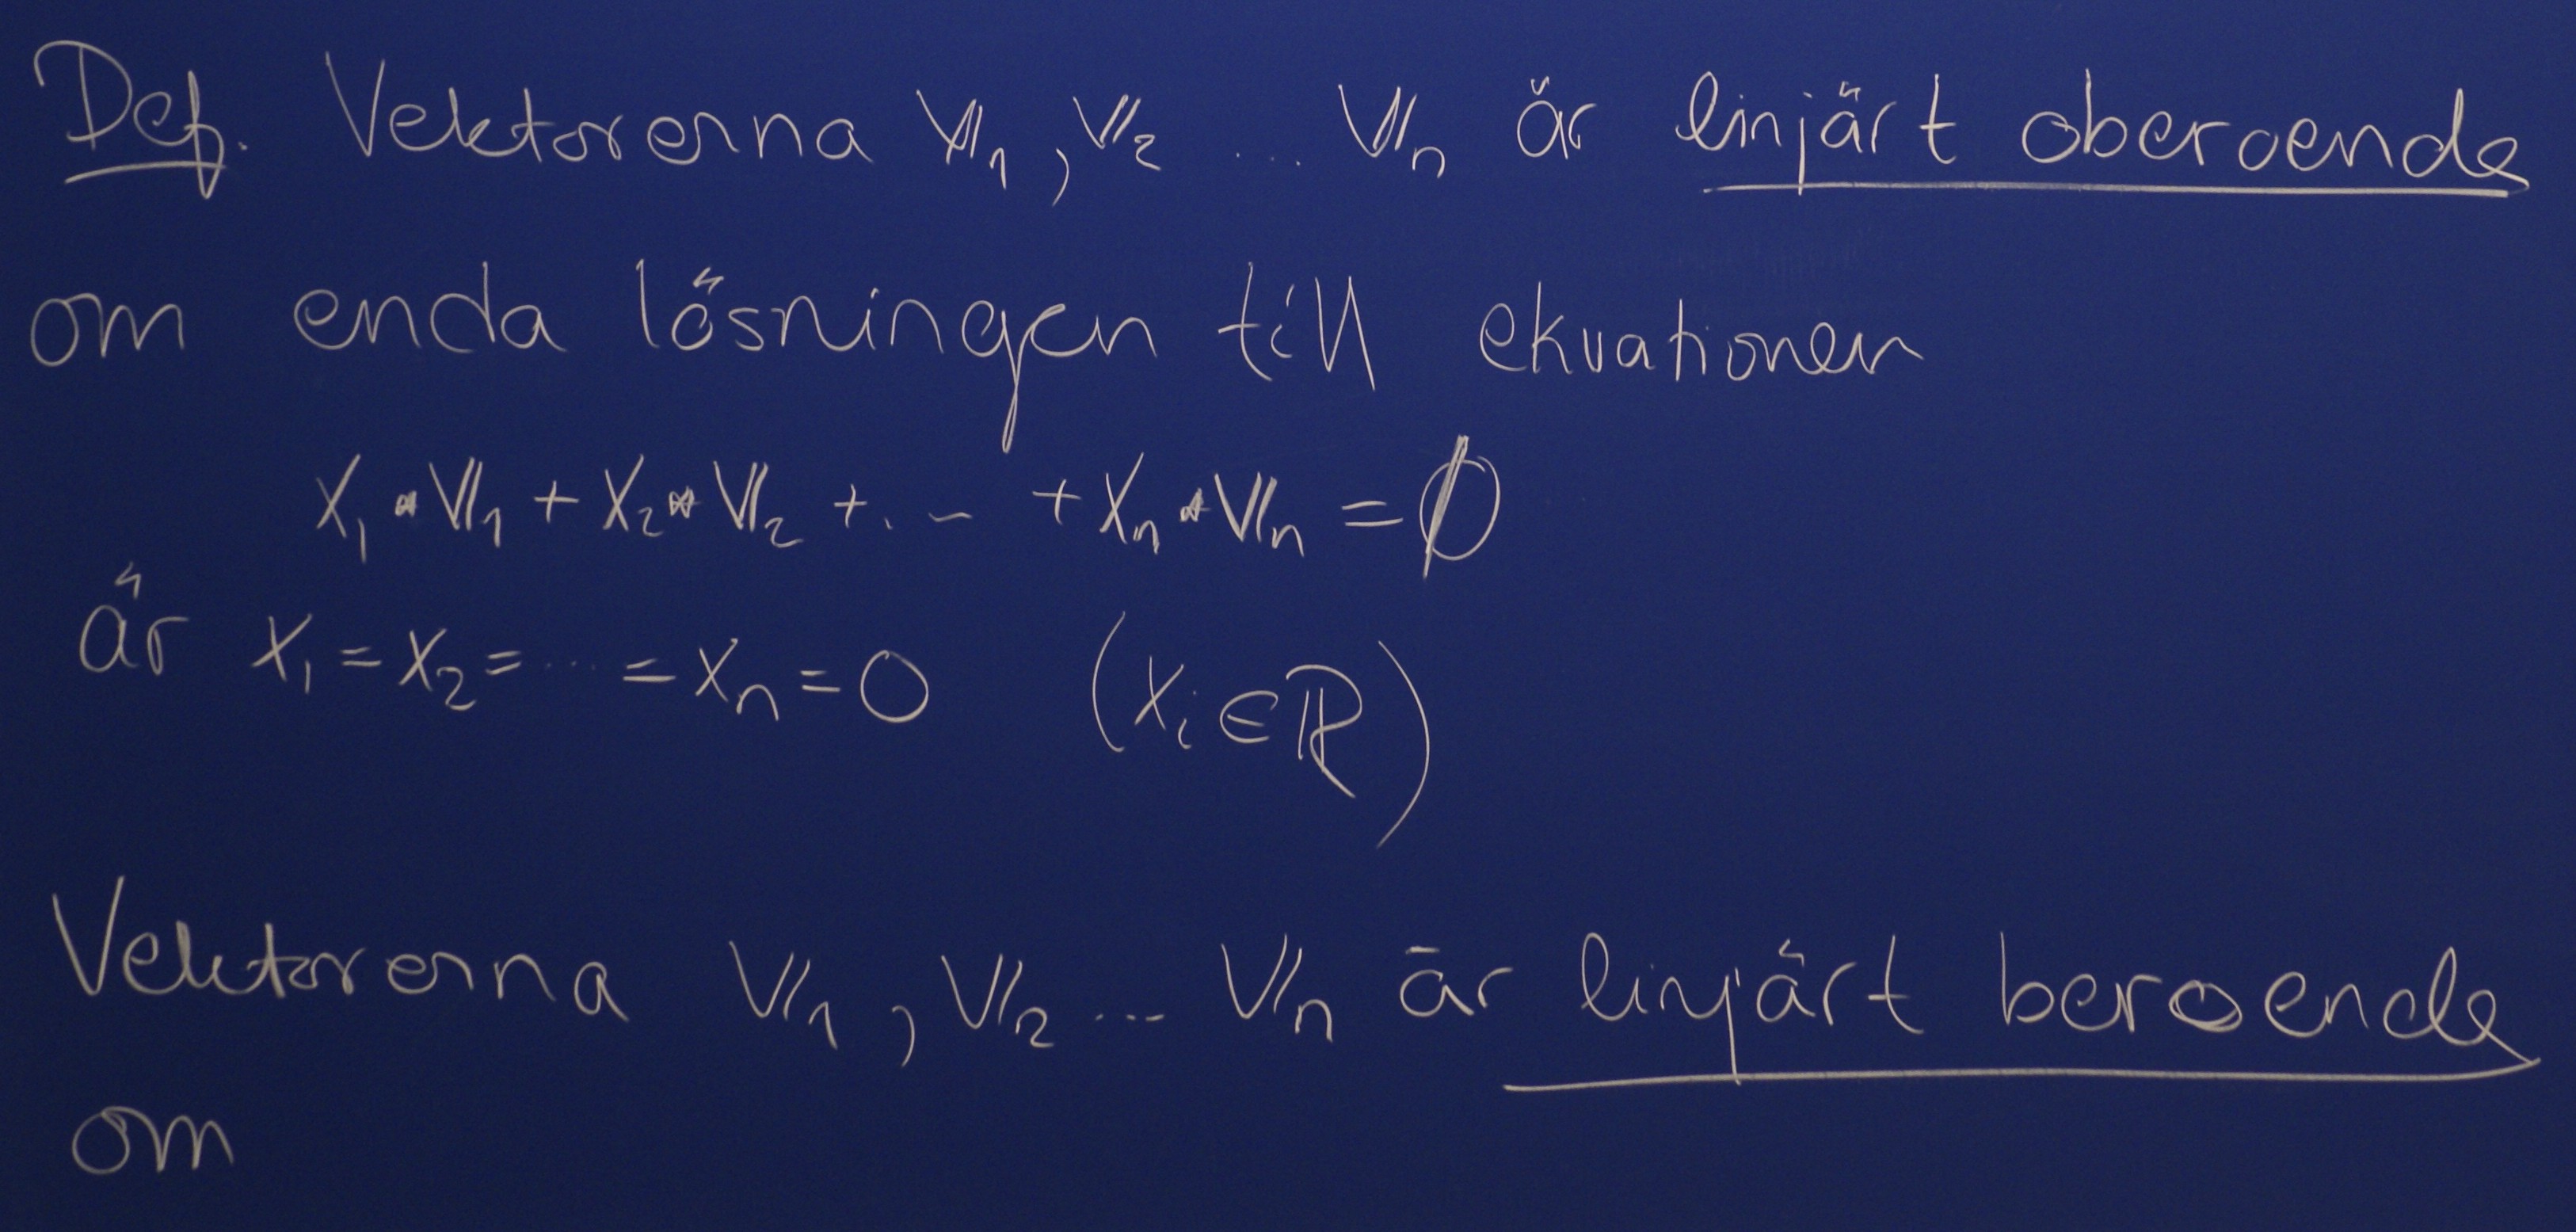 Def. Vektorerna 𝕍₁, 𝕍₂ ... 𝕍ₙ är linjärt oberoende
om enda lösningen till ekvationen
x₁•𝕍₁ + x₂•𝕍₂ + ... + xₙ•𝕍ₙ = 𝟘
är x₁ = x₂ = ... = xₙ = 0 (xᵢ ∈ ℝ)
Vektorerna 𝕍₁, 𝕍₂ ... 𝕍ₙ är linjärt beroende
om